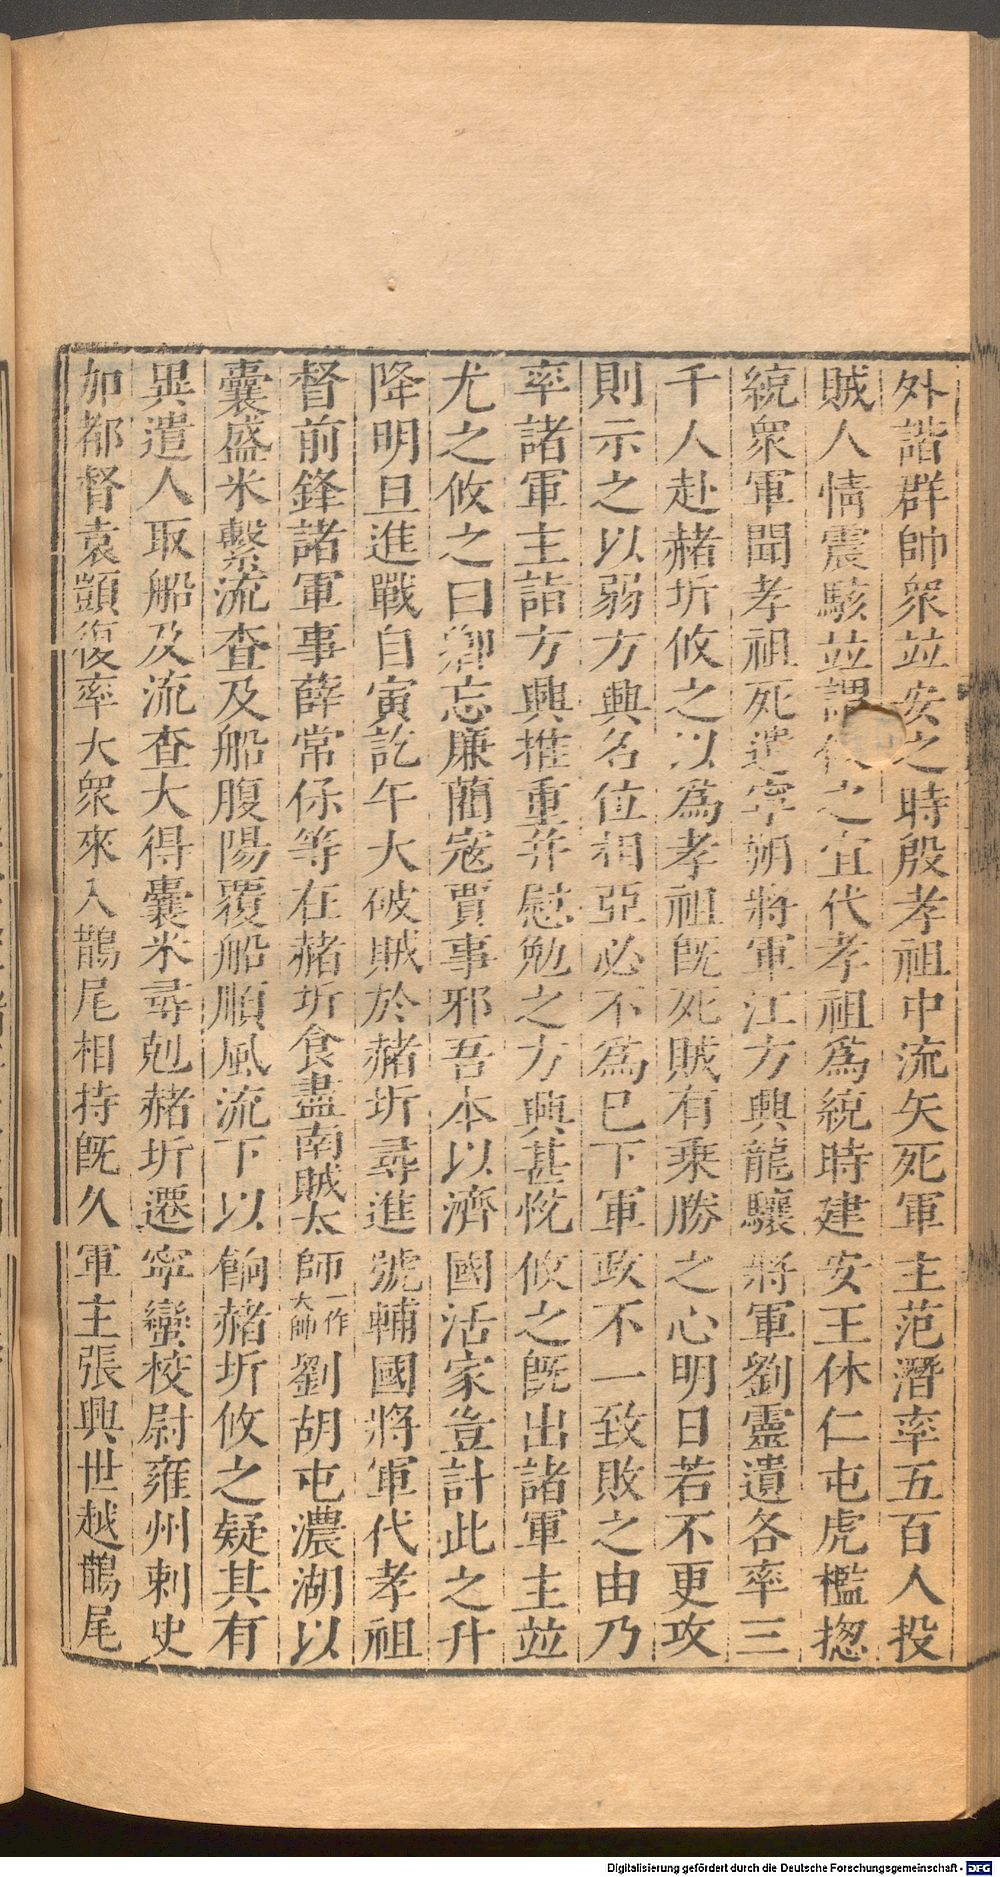 外諧群帥眾並安之時殷孝祖中流矢死軍主范潛率五百人投
賊人情震駭並謂攸之宜代孝祖爲統時建安王休仁屯虎檻揔
統眾軍聞孝祖死遣寧朔將軍江方興龍驤將軍劉靈遺各率三
千人赴赭圻攸之以爲孝祖旣死賊有乗勝之心明日若不更攻
則示之以弱方興名位相亞必不爲已下軍政不一致敗之由乃
率諸軍主詣方興推重并慰勉之方興甚恱攸之旣出諸軍主並
尤之攸之曰卿忘廉藺寇賈事邪吾本以濟國活家豈計此之升
降明旦進戰自寅訖午大破賊於赭圻尋進號輔國將軍代孝祖
督前鋒諸軍事薛常保等在赭圻食盡南賊太師一作大帥劉胡屯濃湖以
囊盛米繫流查及船腹陽覆船順風流下以餉赭圻攸之疑其有
異遣人取船及流查大得囊米尋剋赭圻遷寧蠻校尉雍州刺史
加都督袁顗復率大眾來入鵲尾相持旣久軍主張興世越鵲尾
Digitalisierung gefördert durch die Deutsche Forschungsgemeinschaft - DFG